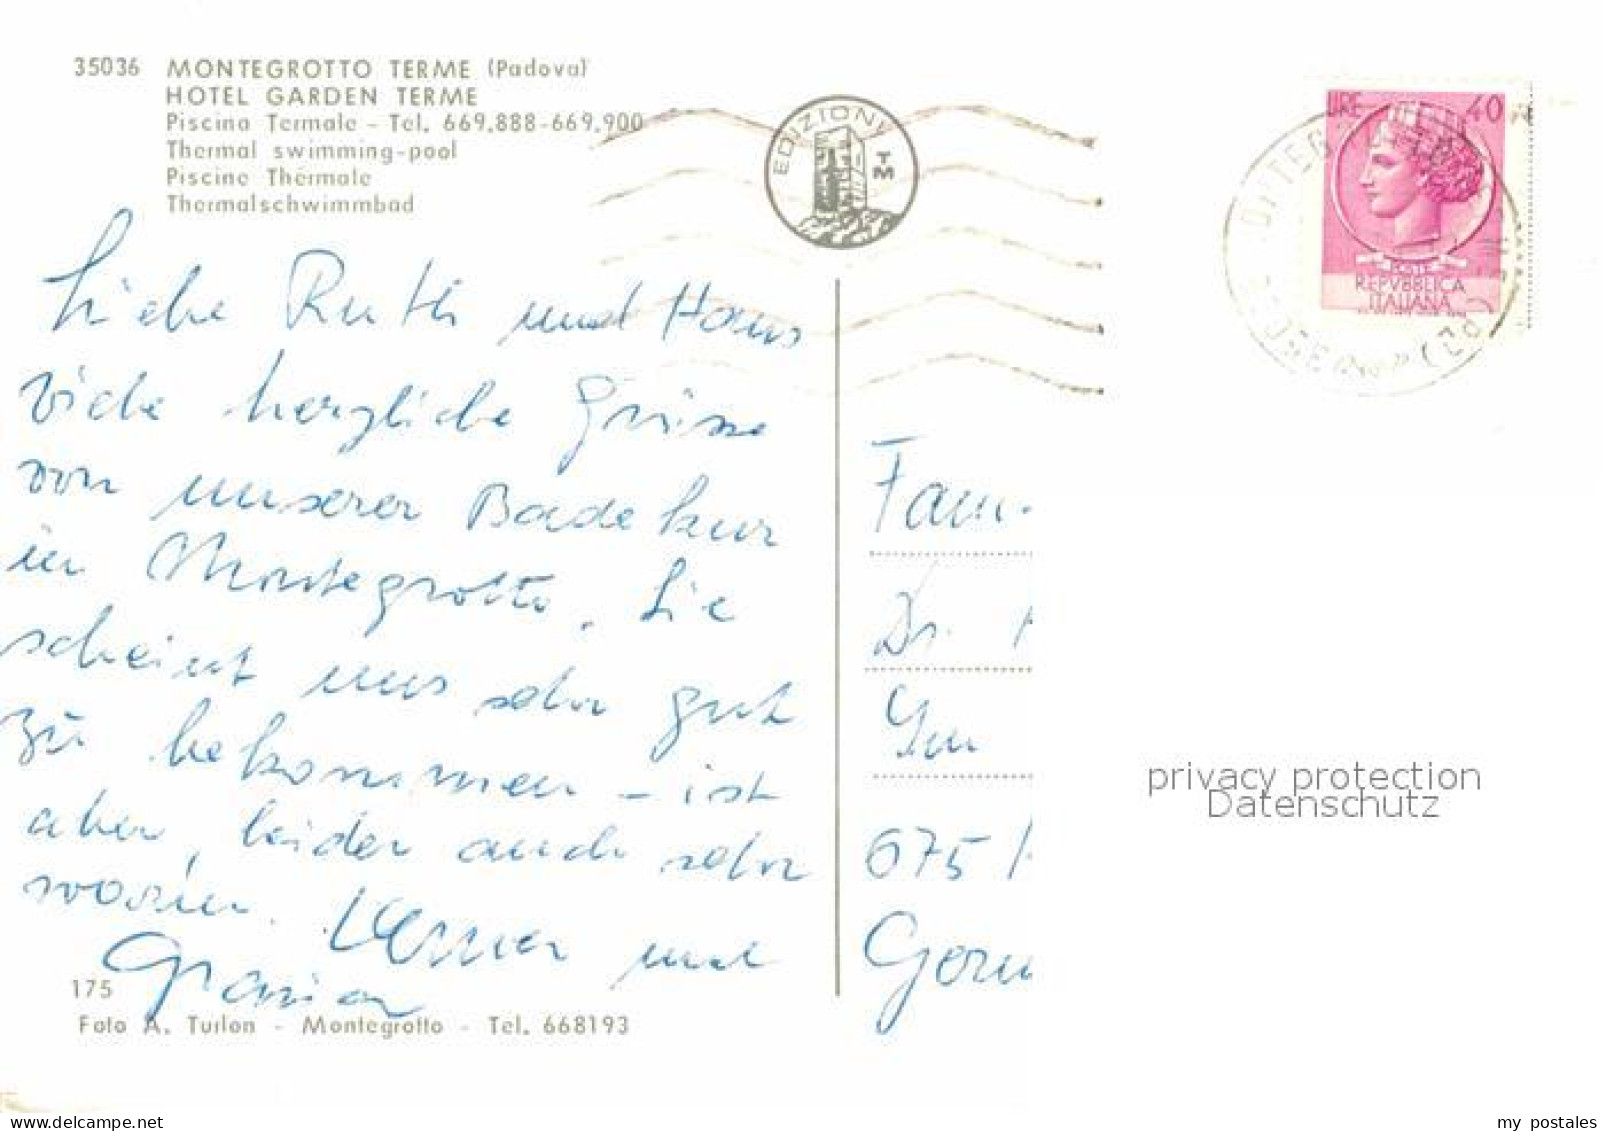 35036 MONTEGROTTO TERME (Padova)
HOTEL GARDEN TERME
Piscina Termale - Tel. 669.888-669.900
Thermal swimming-pool
Piscine Thérmale
Thermalschwimmbad
EDIZIONI
TM
LIRE 40
POSTE
REPVBBLICA
ITALIANA
Liebe Ruth und Hans
Viele herzliche Grüsse
von unserer Badekur
in Montegrotto. Sie
scheint uns sehr gut
zu bekommen - ist
aber, leider auch sehr
warm. Werner und
175
Foto A. Turlon - Montegrotto - Tel. 668193
Fam.
Dr.
Im
675
Germ
privacy protection
Datenschutz
delcampe.net
my_postales